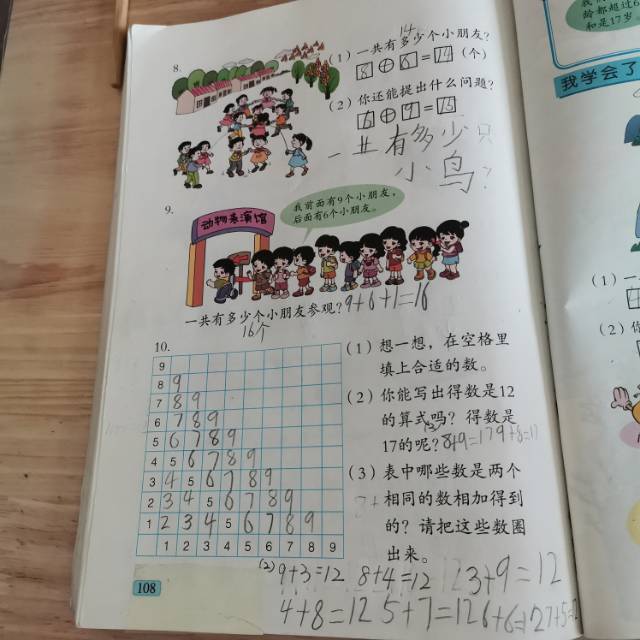 8.
(1) 一共有多少个小朋友?
14
8⊕6=14(个)
(2) 你还能提出什么问题?
6⊕9=15
一共有多少只
小鸟?
9.
我前面有9个小朋友,
后面有6个小朋友。
动物表演馆
一共有多少个小朋友参观?9+6+1=16
16个
10.
(1) 想一想,在空格里
填上合适的数。
(2) 你能写出得数是12
的算式吗?得数是
17的呢?8+9=17 9+8=17
(3) 表中哪些数是两个
相同的数相加得到
的?请把这些数圈
出来。
9
8 9
7 8 9
6 7 8 9
5 6 7 8 9
4 5 6 7 8 9
3 4 5 6 7 8 9
2 3 4 5 6 7 8 9
1 2 3 4 5 6 7 8 9
1 2 3 4 5 6 7 8 9
(2) 9+3=12 8+4=12 3+9=12
4+8=12 5+7=12 6+6=12 7+5=12
108
我学会了
(1)
(2)
和是17岁